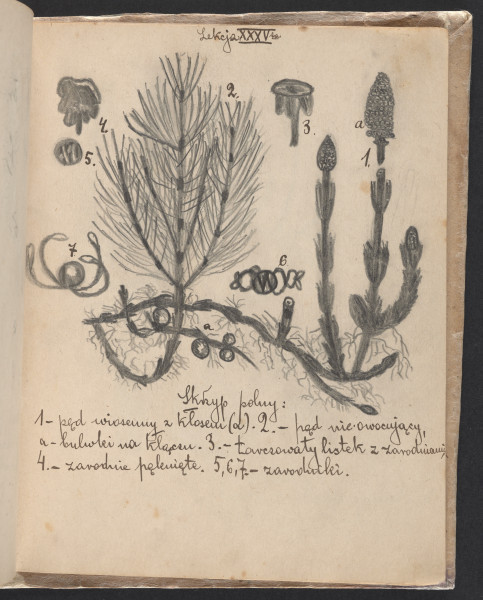 Lekcja XXXVta
2.
a
4.
3.
1.
5.
7
6.
a
Skrzyp polny:
1- pęd wiosenny z kłosem (a). 2. - pęd nie owocujący,
a - bulwki na kłączu. 3. - tarczowaty listek z zarodniami,
4. - zarodnie pęknięte. 5, 6, 7. - zarodniki.